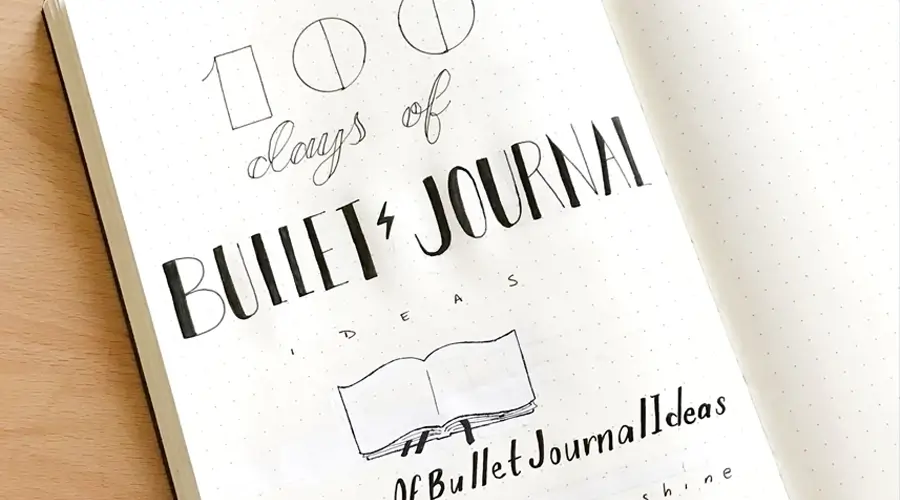 100
days of
BULLET JOURNAL
IDEAS
OfBulletJournalIdeas